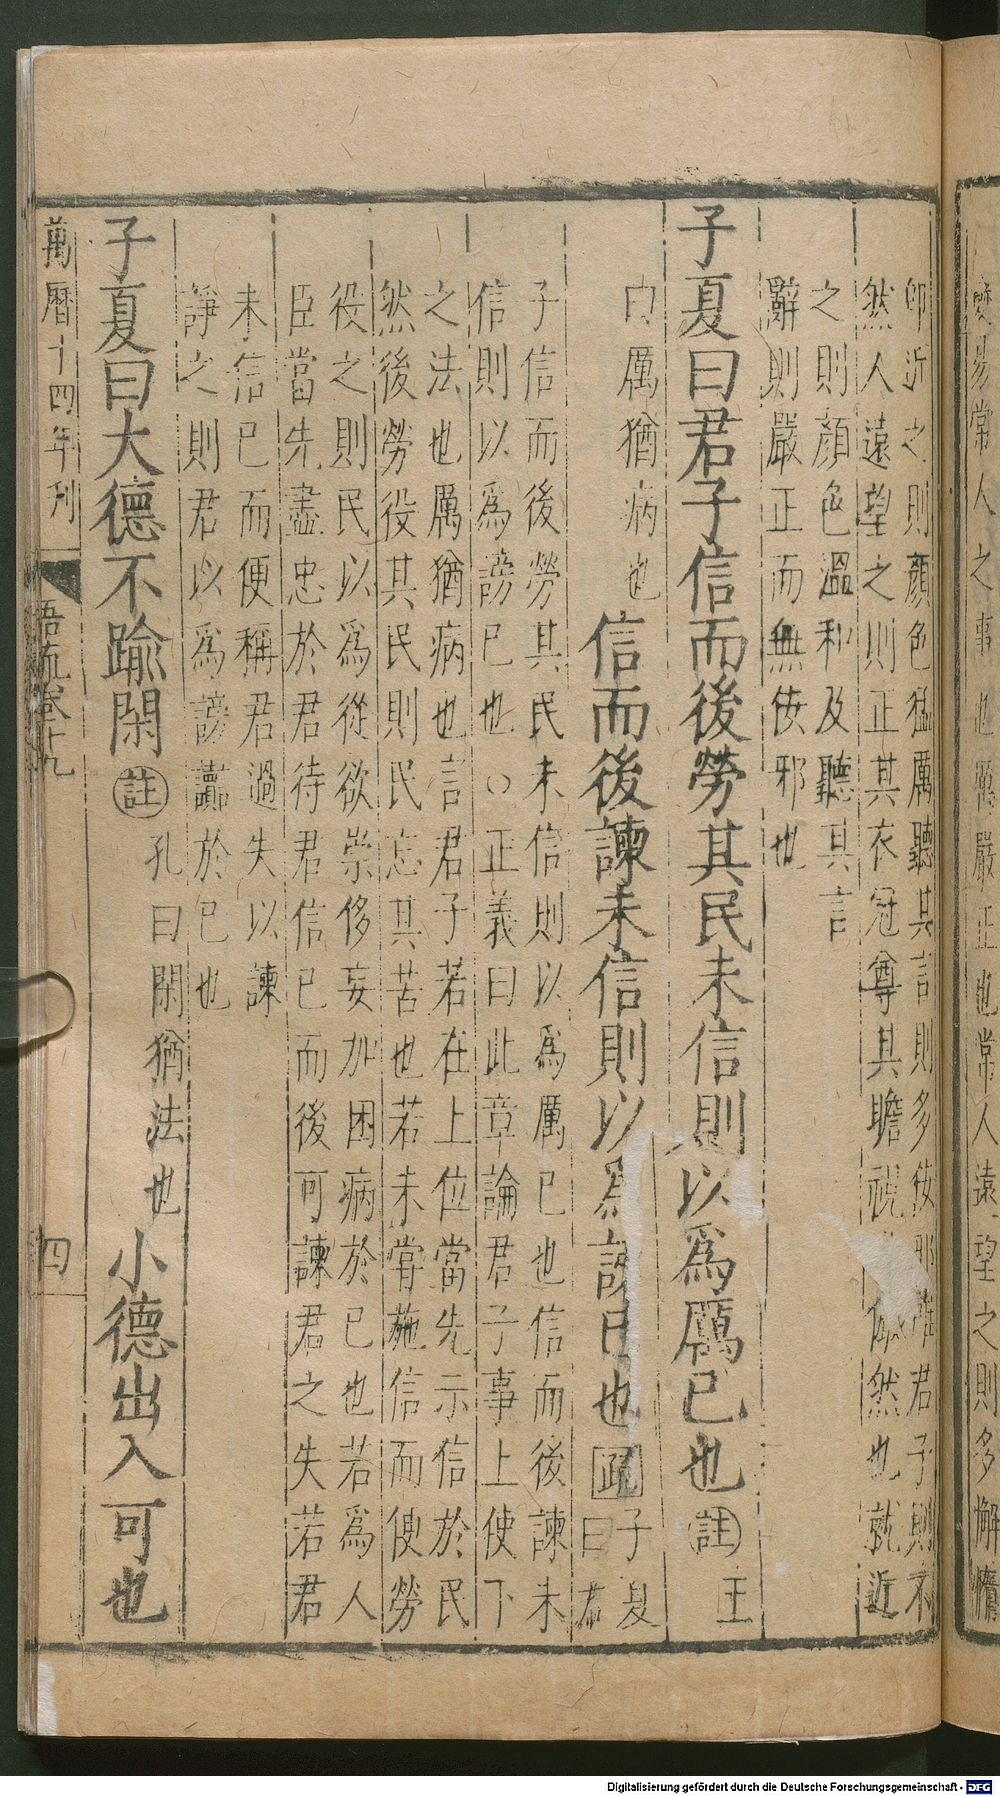 變易常人之事也厲嚴正也常人遠望之則多懈惰
卽近之則顏色猛厲聽其言則多佞邪唯君子則不
然人遠望之則正其衣冠尊其瞻視儼然也就近
之則顏色溫和及聽其言
辭則嚴正而無佞邪也
子夏曰君子信而後勞其民未信則以爲厲己也註王
曰厲猶病也
信而後諫未信則以爲謗己也疏子夏
曰君
子信而後勞其民未信則以爲厲己也信而後諫未
信則以爲謗己也○正義曰此章論君子事上使下
之法也厲猶病也言君子若在上位當先示信於民
然後勞役其民則民忘其苦也若未嘗施信而便勞
役之則民以爲從欲崇侈妄加困病於己也若爲人
臣當先盡忠於君待君信己而後可諫君之失若君
未信己而便稱君過失以諫
諍之則君以爲謗讟於己也
子夏曰大德不踰閑註孔曰閑猶法也小德出入可也
萬曆十四年刊
語疏卷十九
四
Digitalisierung gefördert durch die Deutsche Forschungsgemeinschaft - DFG